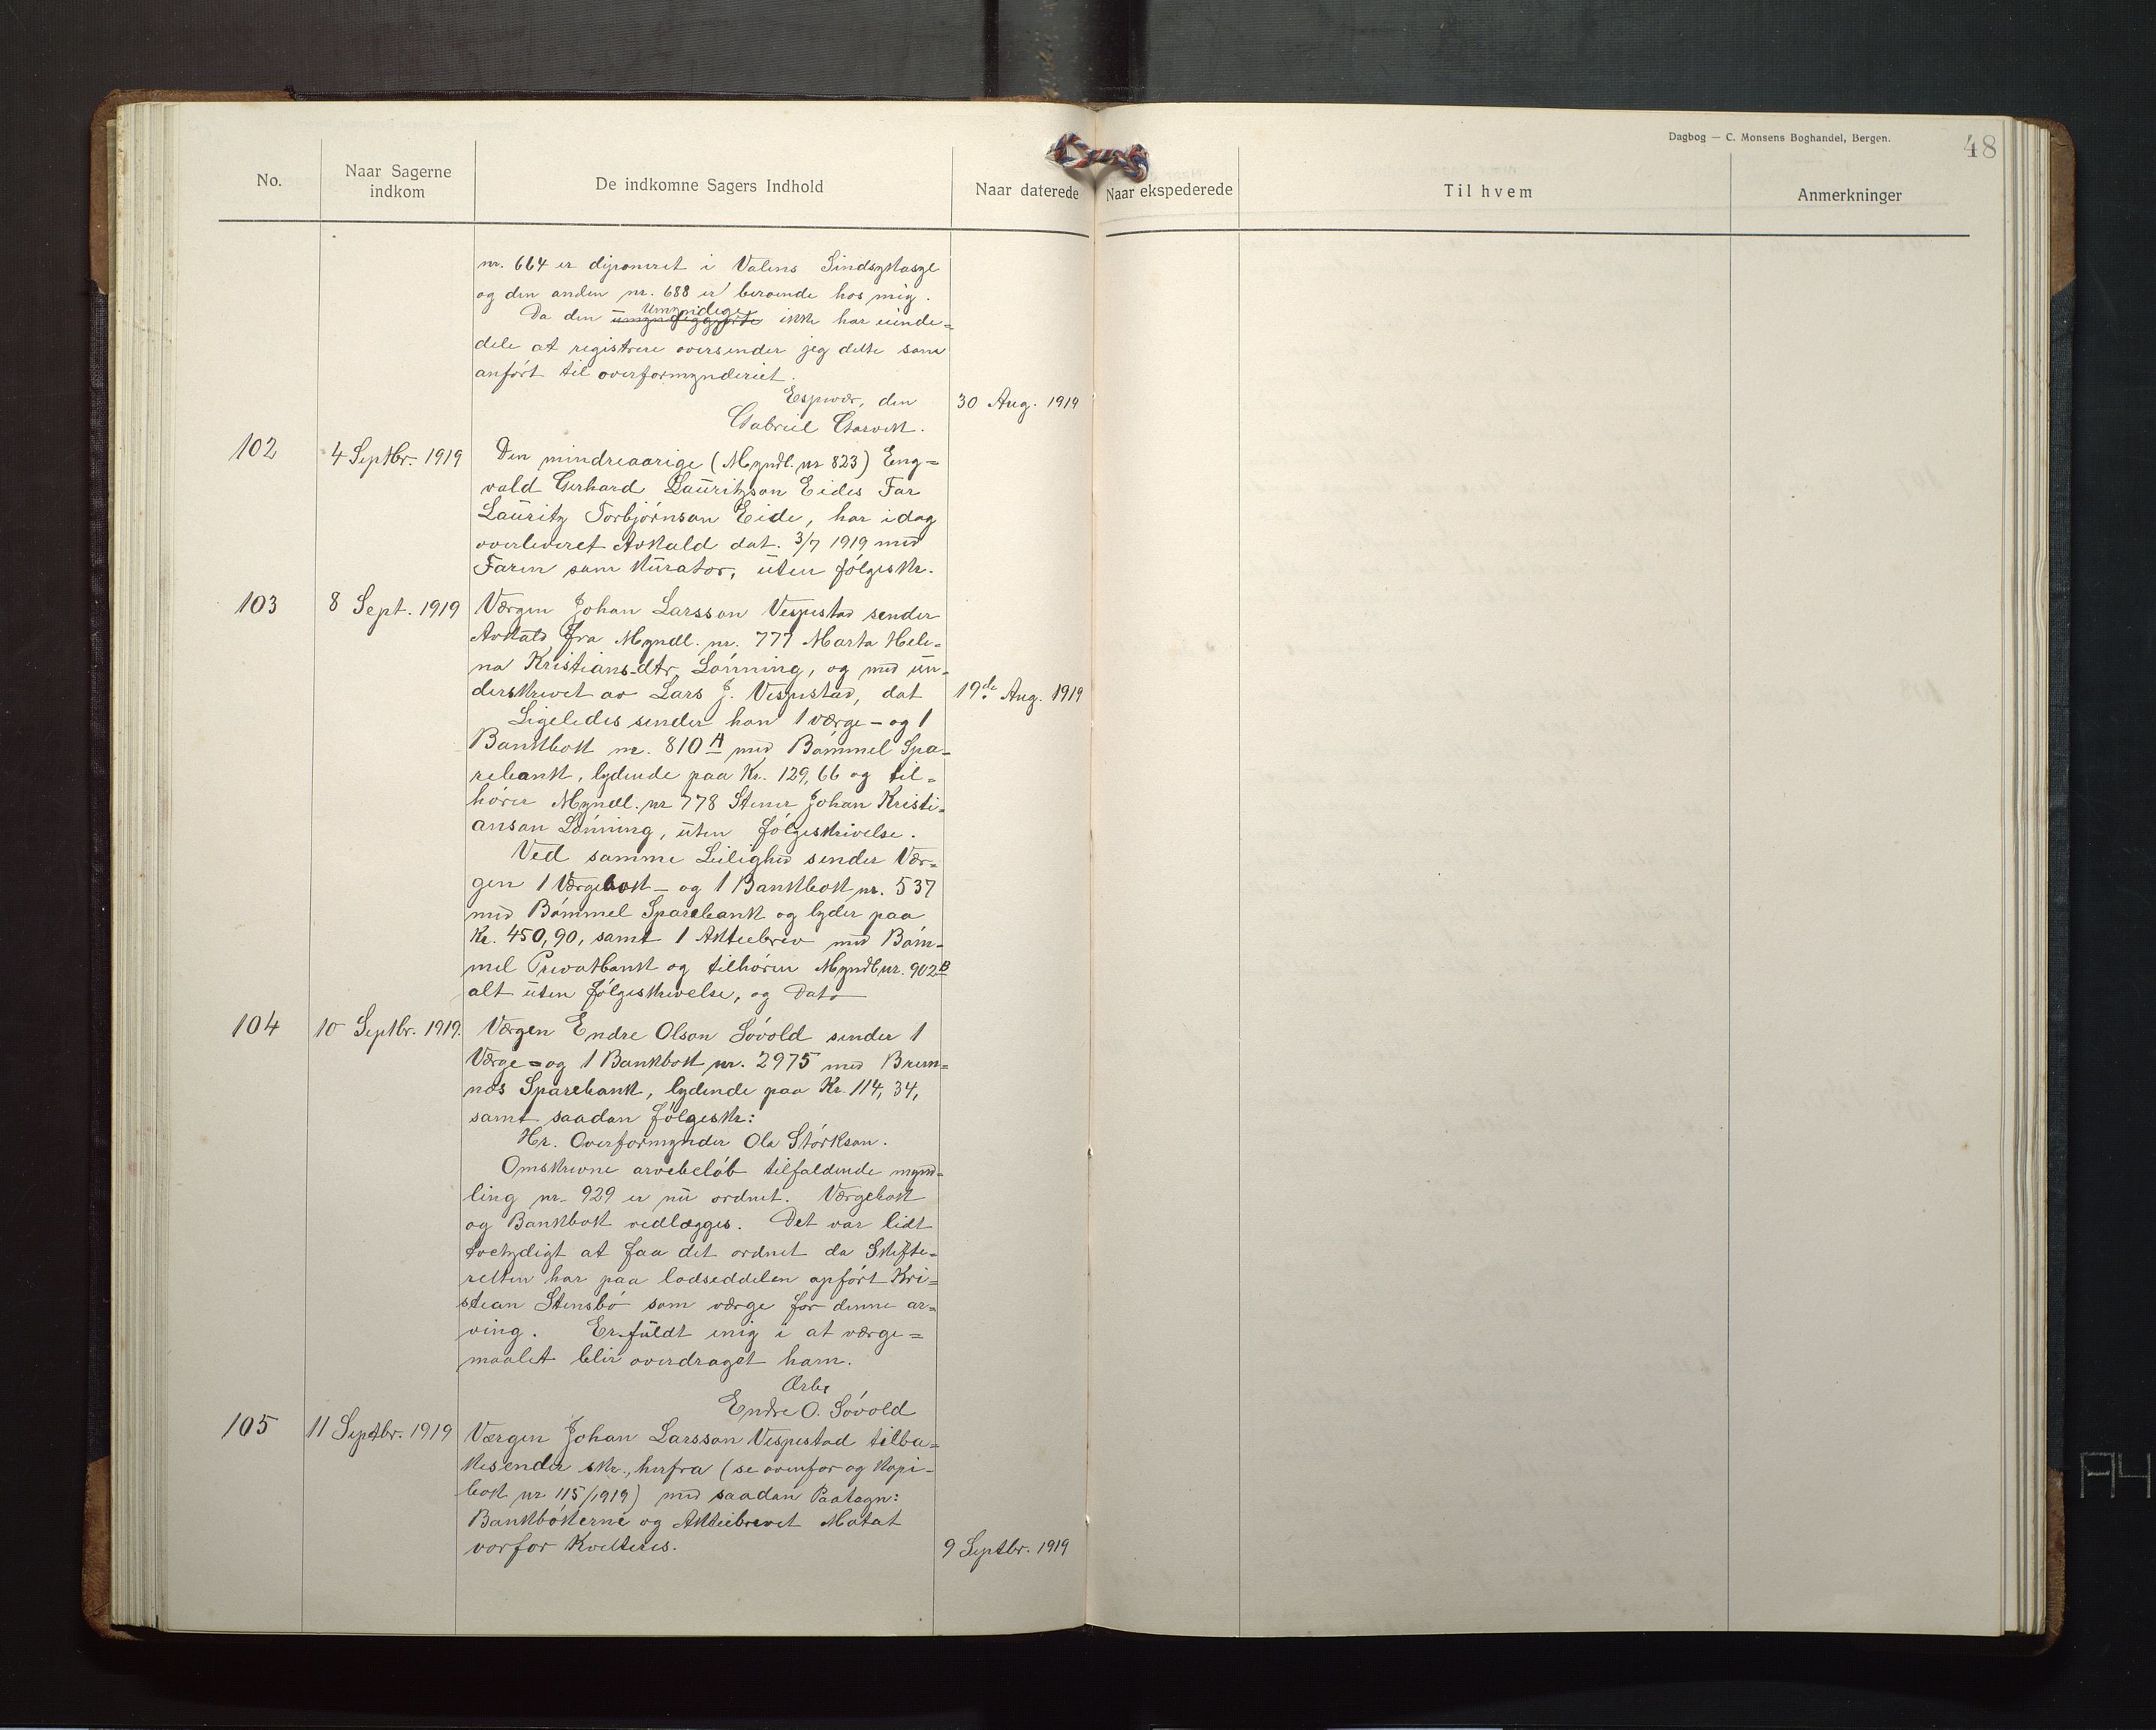 Dagbog — C. Monsens Boghandel, Bergen.
48
No.
Naar Sagerne
indkom
De indkomne Sagers Indhold
Naar daterede
Naar ekspederede
Til hvem
Anmerkninger
nr. 664 er diponeret i Valens Sindsykasyl
og den anden nr. 688 er beroende hos mig.
Da den Umyndige umyndiggjorte ikke har eiende=
dele at registrere oversender jeg dette som
anført til overformynderiet.
Espevær, den 30 Aug. 1919
Gabriel
102 4 Septbr. 1919 Den mindreaarige (Myndl. nr 823) Eng=
vald Gerhard Lauritzson Eides Far
Lauritz Torbjørnson Eide, har idag
overleveret Avkald dat. 3/7 1919 med
Faren som Kurator, uten følgeskr.
103 8 Sept. 1919 Værgen Johan Larsson Vespestad sender
Avkald fra Myndl. nr. 777 Marta Hele=
na Kristians-dtr. Lønning, og med un=
derskrevet av Lars J. Vespestad, dat 19de Aug. 1919
Ligeledes sender han 1 værge - og 1
Bankbok nr. 810 A med Bømmel Spa=
rebank, lydende paa Kr. 129,66 og til=
hører Myndl. nr 778 Stener Johan Kristi=
anson Lønning, uten følgeskrivelse.
Ved samme Leilighed sender Vær=
gen 1 Værgebok - og 1 Bankbok nr. 537
med Bømmel Sparebank og lyder paa
Kr. 450,90, samt 1 Aktiebrev med Bøm=
mel Privatbank og tilhører Myndl nr. 902 B
alt uten følgeskrivelse, og Dato
104 10 Septbr. 1919. Værgen Endre Olson Søvold sender 1
Værge = og 1 Bankbok nr. 2975 med Brem=
næs Sparebank, lydende paa Kr. 114,34,
samt saadan følgeskr:
Hr. Overformynder Ola Størkson.
Omskrevne arvebeløb tilfaldende mynd=
ling nr. 929 er nu ordnet. Værgebok
og Bankbok vedlægges. Det var lidt
tvetydigt at faa det ordnet da Skifte=
retten har paa lodseddelen opført Kri=
stian Stensbø som værge for denne ar=
ving. Er fuldt enig i at værge=
maalet blir overdraget ham.
Ærbø
Endre O. Søvold
105 11 Septbr. 1919 Værgen Johan Larsson Vespestad tilba=
kesender skr., herfra (se ovenfor og Kopi=
bok nr 115/1919) med saadan Paategn:
Bankbøkerne og Aktiebrevet Motat
vorfor Kvitteres. 9 Septbr. 1919